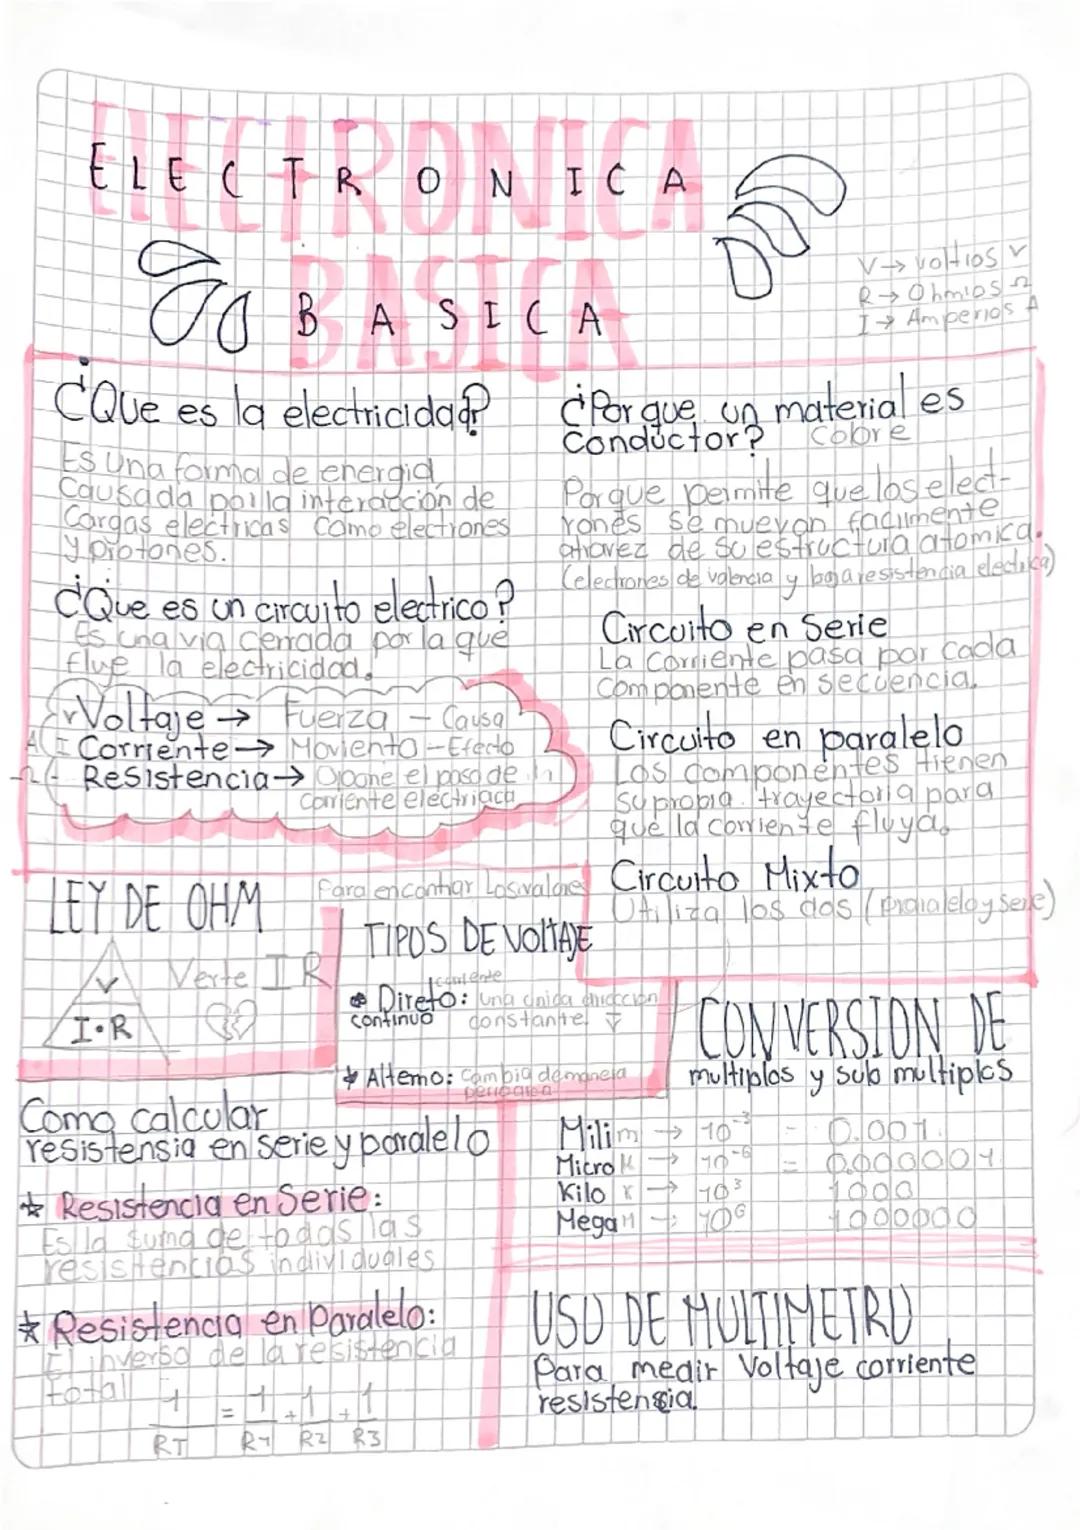 ELECTRONICA
BASICA
V → voltios V
R → Ohmios Ω
I → Amperios A
¿Que es la electricidad?
Es una forma de energia,
Causada por la interacción de
Cargas electricas como electrones
y protones.
¿Que es un circuito electrico?
Es una via cerrada por la que
fluye la electricidad.
V Voltaje → Fuerza - Causa
A I Corriente → Moviento - Efecto
Ω Resistencia → Opone el paso de
corriente electriaca
¿Por que un material es
conductor? Cobre
Porque permite que los elect-
rones se muevan facilmente
atravez de su estructura atomica.
(electrones de valencia y baja resistencia electrica)
Circuito en Serie
La corriente pasa por cada
componente en secuencia.
Circuito en paralelo
Los componentes tienen
su propia trayectoria para
que la corriente fluya.
Circuito Mixto
Utiliza los dos (paralelo y serie)
LEY DE OHM
Para encontrar los valores
V
I·R
Verte I R
TIPOS DE VOLTAJE
corriente
Direto: una unida dirección
continuo constante.
Alterno: Cambia de manera
periodica
CONVERSION DE
multiplos y sub multiplos
Mili m → 10⁻³ = 0.001
Micro → 10⁻⁶ = 0.000001
Kilo K → 10³ 1000
Mega M → 10⁶ 1000000
Como calcular
resistensia en serie y paralelo
☆ Resistencia en Serie:
Es la suma de todas las
resistencias individuales
☆ Resistencia en Paralelo:
El inverso de la resistencia
total
1/RT = 1/R1 + 1/R2 + 1/R3
USO DE MULTIMETRO
Para medir Voltaje corriente
resistensia.